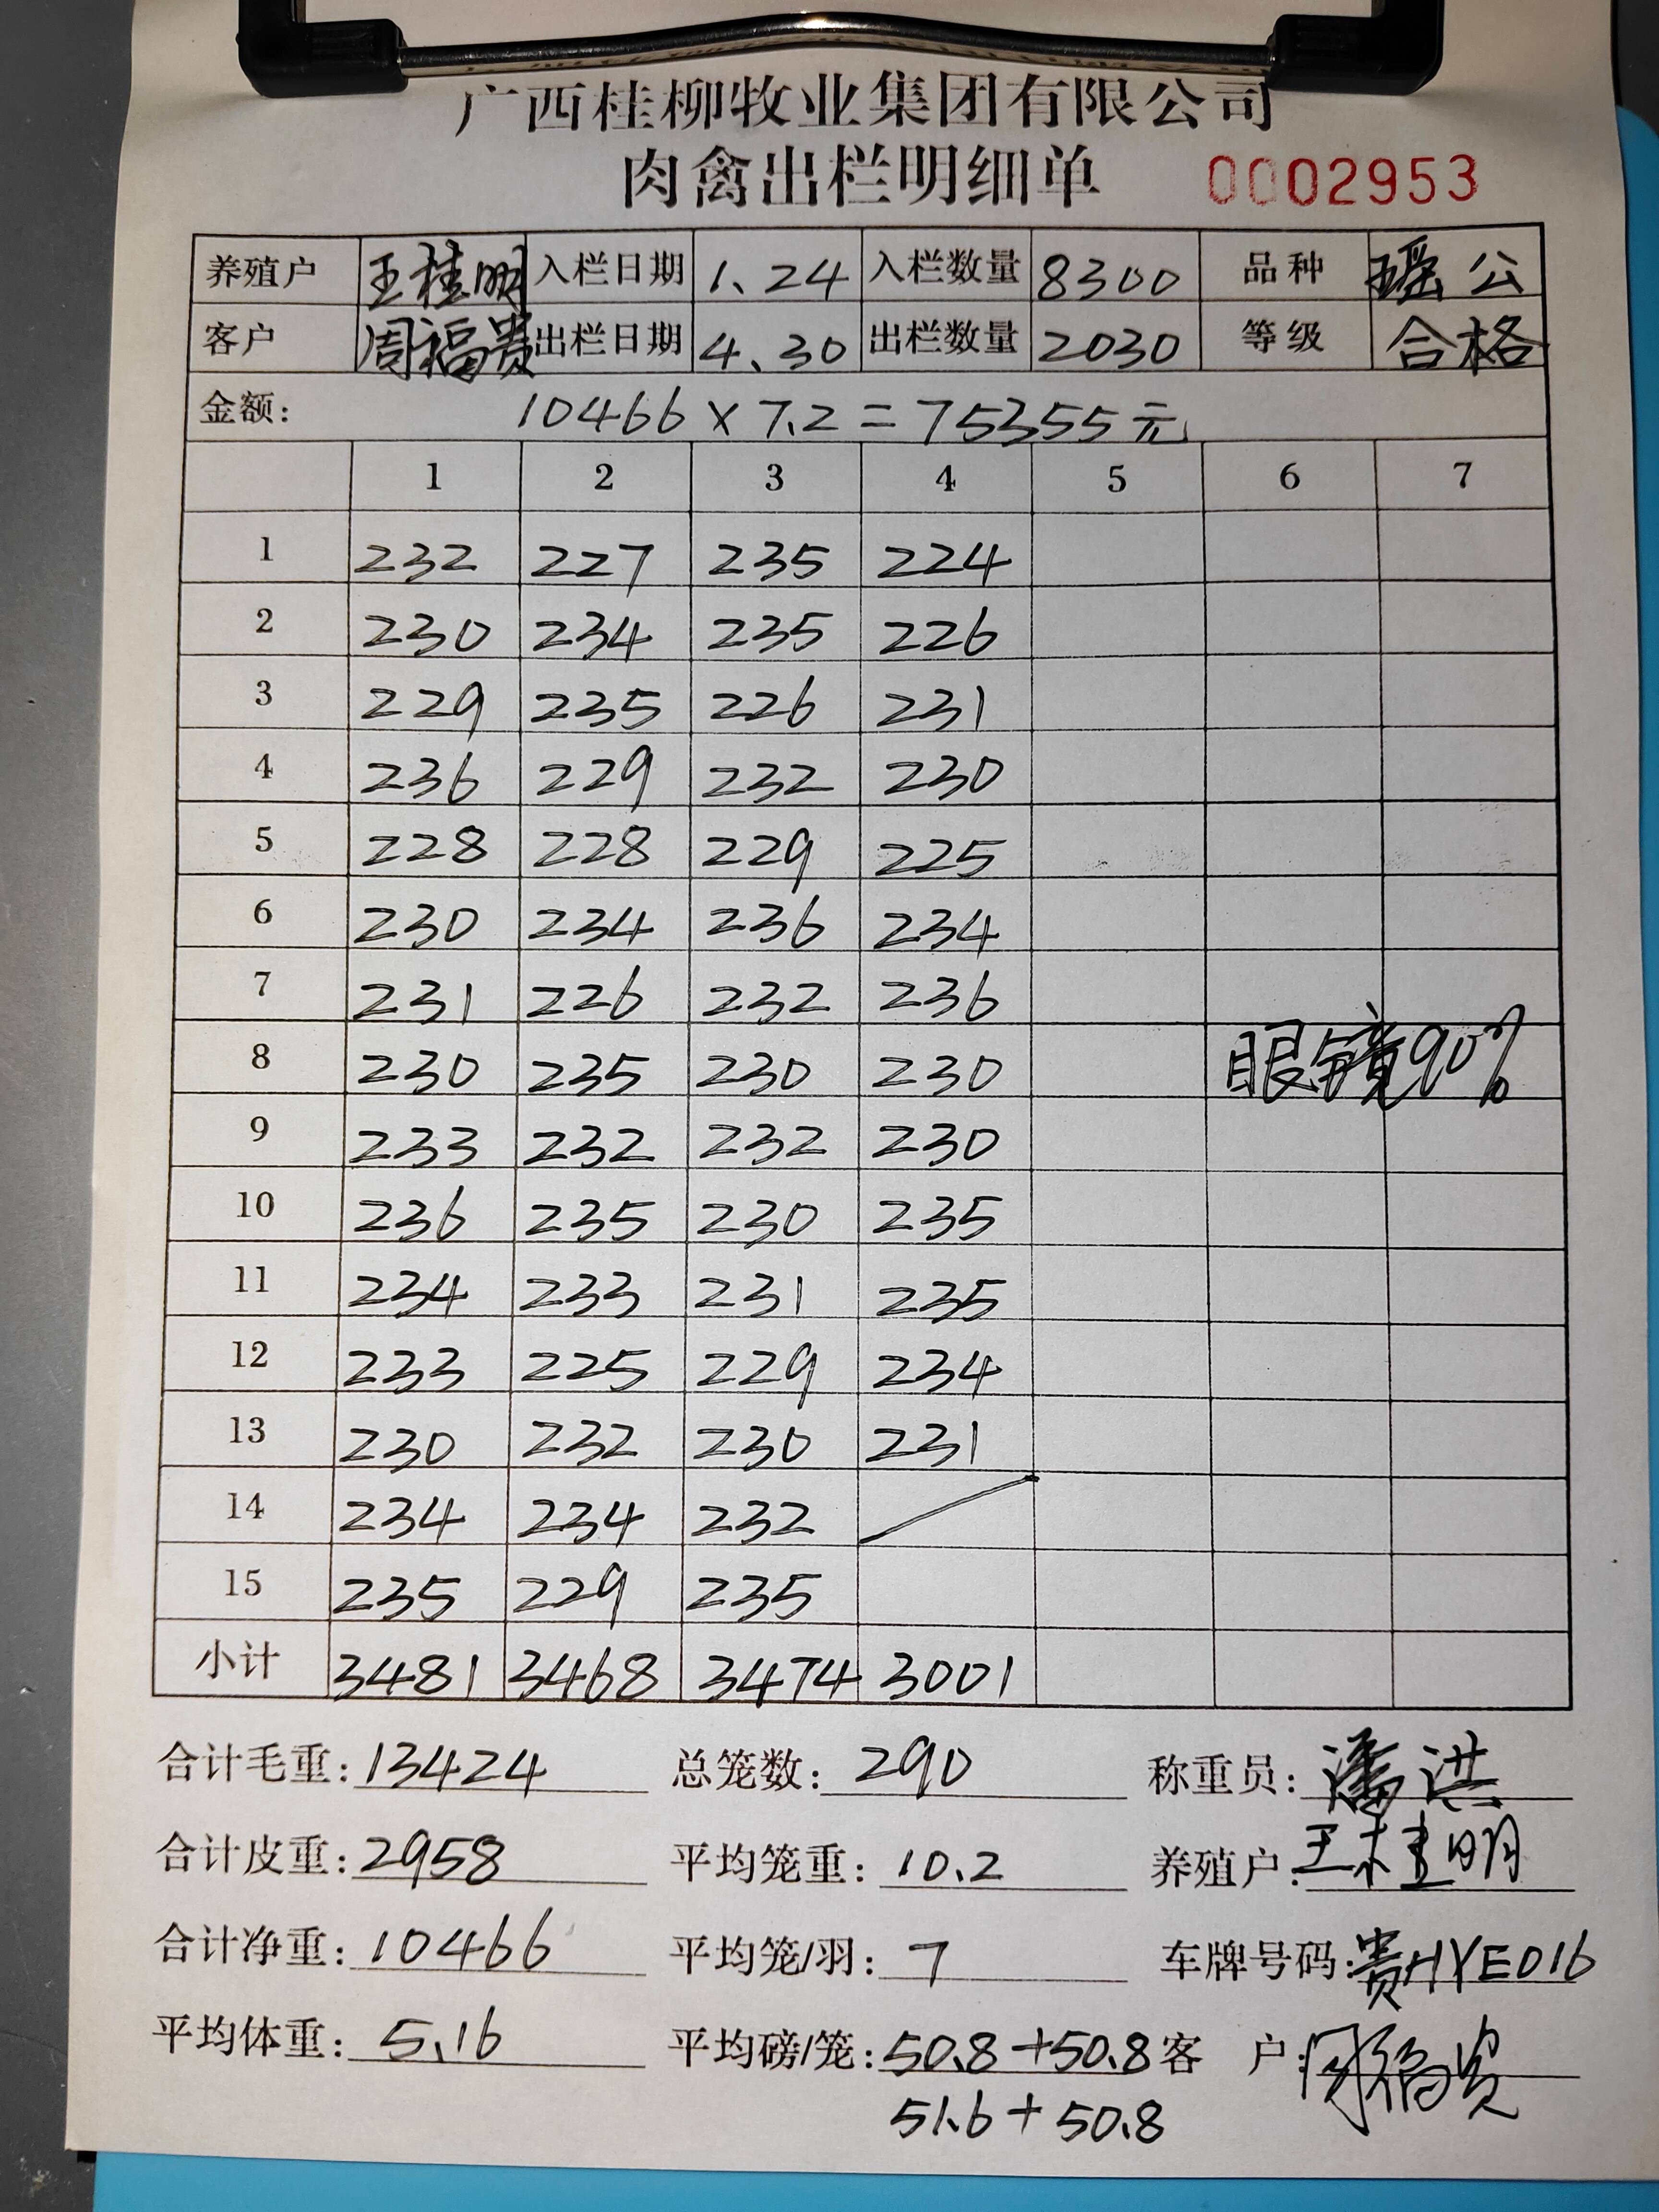 广西桂柳牧业集团有限公司
肉禽出栏明细单 0002953
养殖户 王桂明 入栏日期 1.24 入栏数量 8300 品种 瑶公
客户 周福贵 出栏日期 4.30 出栏数量 2030 等级 合格
金额: 10466×7.2=75355元
1 2 3 4 5 6 7
1 232 227 235 224
2 230 234 235 226
3 229 235 226 231
4 236 229 232 230
5 228 228 229 225
6 230 234 236 234
7 231 226 232 236
8 230 235 230 230 眼镜90%
9 233 232 232 230
10 236 235 230 235
11 234 233 231 235
12 233 225 229 234
13 230 232 230 231
14 234 234 232
15 235 229 235
小计 3481 3468 3474 3001
合计毛重: 13424 总笼数: 290 称重员: 潘洪
合计皮重: 2958 平均笼重: 10.2 养殖户: 王桂明
合计净重: 10466 平均笼/羽: 7 车牌号码: 贵HYE016
平均体重: 5.16 平均磅/笼: 50.8+50.8 客 户: 周福贵
51.6+50.8